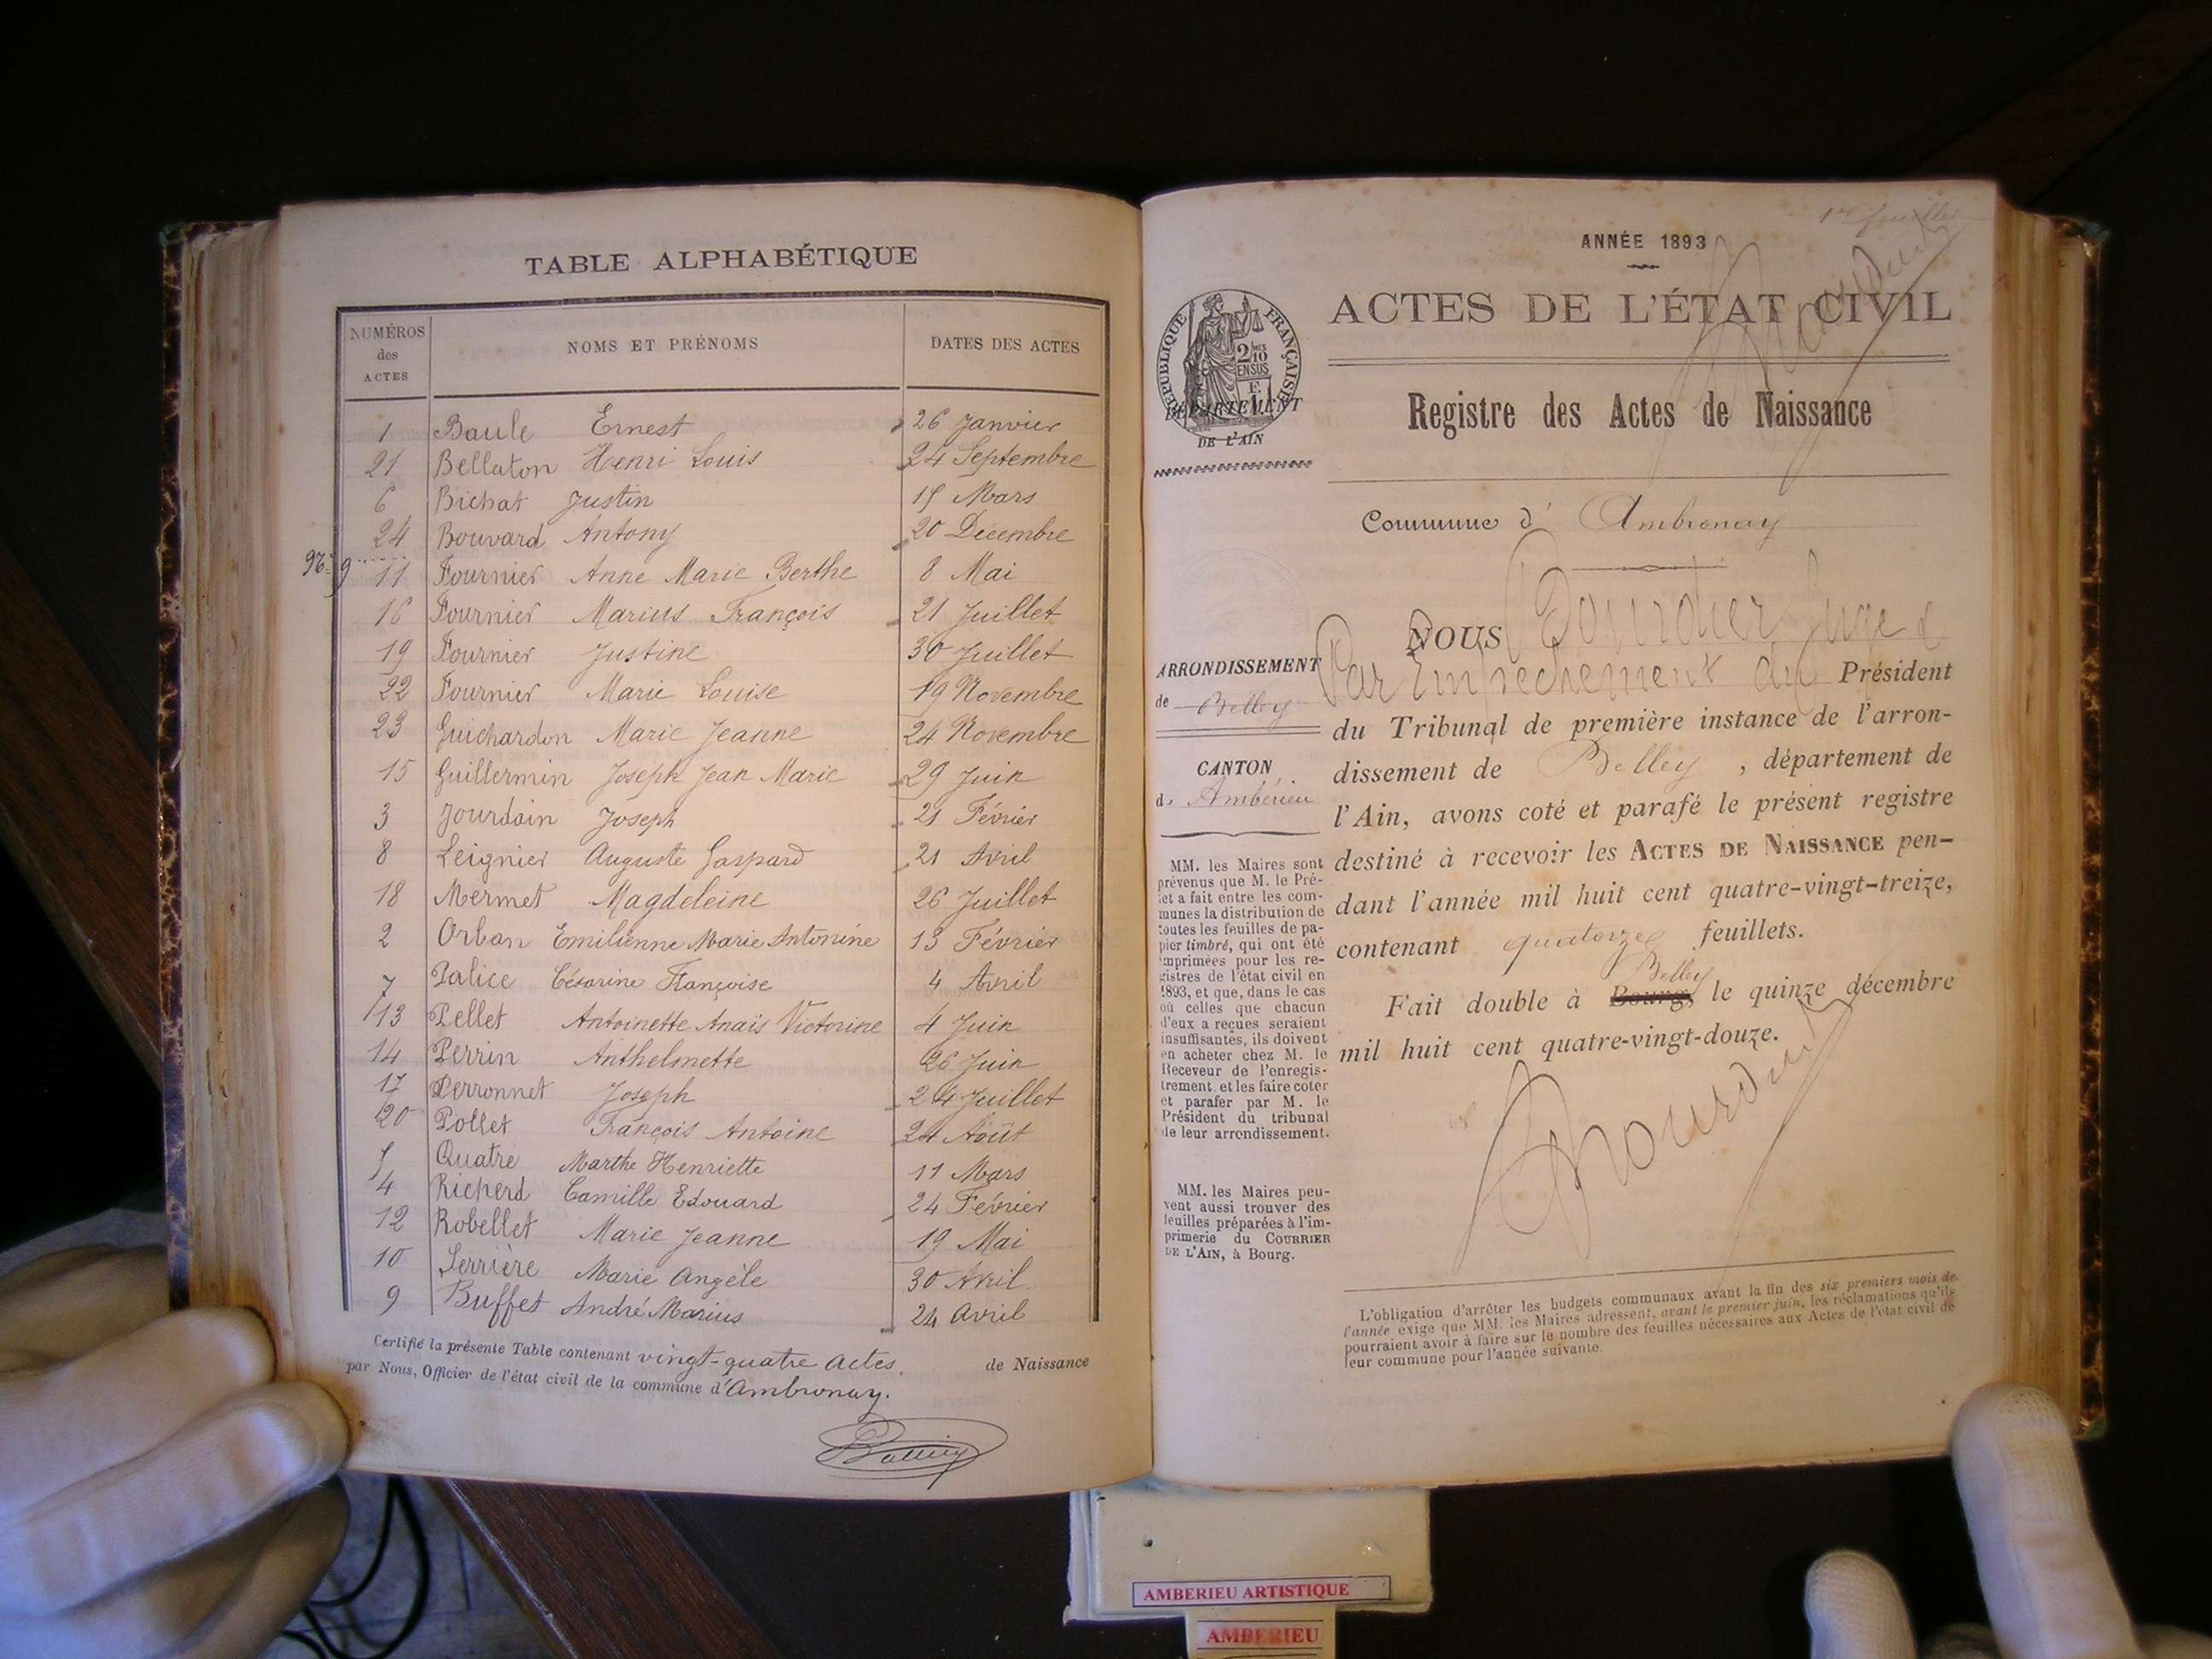 TABLE ALPHABÉTIQUE
NUMÉROS des ACTES NOMS ET PRÉNOMS DATES DES ACTES
1 Baule Ernest 26 Janvier
21 Bellaton Henri Louis 24 Septembre
6 Bichat Justin 15 Mars
24 Bouvard Antony 20 Décembre
11 Fournier Anne Marie Berthe 8 Mai
16 Fournier Marius François 21 Juillet
19 Fournier Justine 30 Juillet
22 Fournier Marie Louise 19 Novembre
23 Guichardon Marie Jeanne 24 Novembre
15 Guillermin Joseph Jean Marie 29 Juin
3 Jourdain Joseph 21 Février
8 Leignier Auguste Gaspard 21 Avril
18 Mermet Magdeleine 26 Juillet
2 Orban Emilienne Marie Antonine 13 Février
7 Palice Césarine Françoise 4 Avril
13 Pellet Antoinette Anaïs Victorine 4 Juin
14 Perrin Anthelmette 26 Juin
17 Perronnet Joseph 24 Juillet
20 Pollet François Antoine 24 Août
5 Quatre Marthe Henriette 11 Mars
4 Richerd Camille Edouard 24 Février
12 Robellet Marie Jeanne 19 Mai
10 Serrière Marie Angèle 30 Avril
9 Buffet André Marius 24 Avril
Certifié la présente Table contenant vingt-quatre actes de Naissance
par Nous, Officier de l'état civil de la commune d'Ambronay.
1er feuillet
ANNÉE 1893
ACTES DE L'ÉTAT CIVIL
RÉPUBLIQUE FRANÇAISE
2/10 EN SUS
DÉPARTEMENT
DE L'AIN
Registre des Actes de Naissance
Commune d' Ambronay
ARRONDISSEMENT
de Belley
CANTON
d. Ambérieu
MM. les Maires sont
prévenus que M. le Pré-
fet a fait entre les com-
munes la distribution de
toutes les feuilles de pa-
pier timbré, qui ont été
imprimées pour les re-
gistres de l'état civil en
1893, et que, dans le cas
où celles que chacun
d'eux a reçues seraient
insuffisantes, ils doivent
en acheter chez M. le
Receveur de l'enregis-
trement, et les faire coter
et parafer par M. le
Président du tribunal
de leur arrondissement.
MM. les Maires peu-
vent aussi trouver des
feuilles préparées à l'im-
primerie du COURRIER
DE L'AIN, à Bourg.
NOUS Juge
Par Empêchement du Président
du Tribunal de première instance de l'arron-
dissement de Belley, département de
l'Ain, avons coté et parafé le présent registre
destiné à recevoir les ACTES DE NAISSANCE pen-
dant l'année mil huit cent quatre-vingt-treize,
contenant quatorze feuillets.
Belley
Fait double à Bourg, le quinze décembre
mil huit cent quatre-vingt-douze.
L'obligation d'arrêter les budgets communaux avant la fin des six premiers mois de
l'année exige que MM. les Maires adressent, avant le premier juin, les réclamations qu'ils
pourraient avoir à faire sur le nombre des feuilles nécessaires aux Actes de l'état civil de
leur commune pour l'année suivante.
AMBERIEU ARTISTIQUE
AMBERIEU